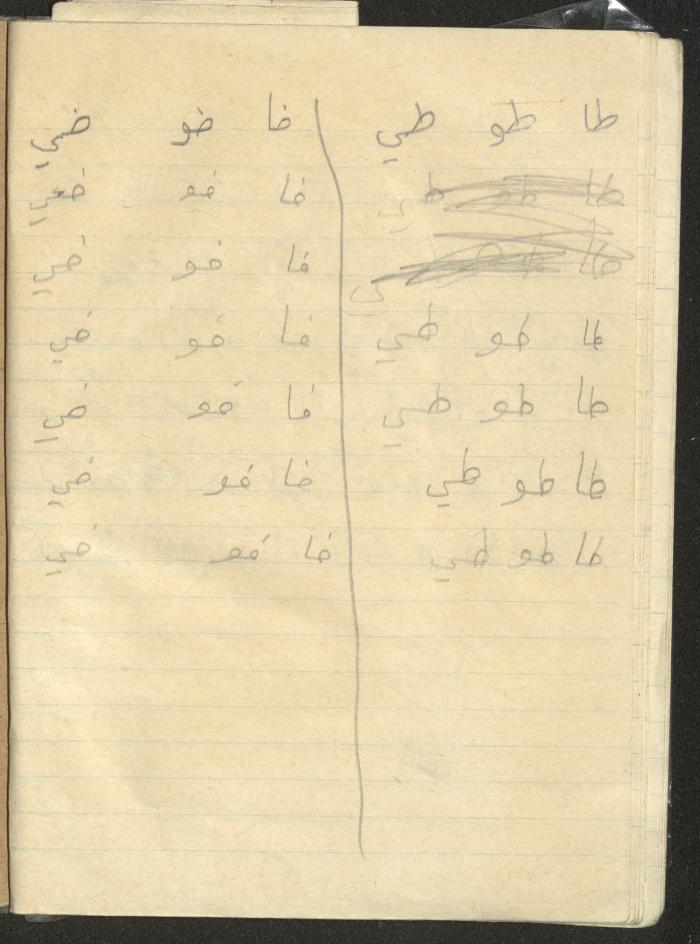 طا طو طي
طا طو طي
طا طو طي
طا طو طي
طا طو طي
طا طو طي
ضا ضو ضي
ضا ضو ضي
ضا ضو ضي
ضا ضو ضي
ضا ضو ضي
ضا ضو ضي
ضا ضو ضي